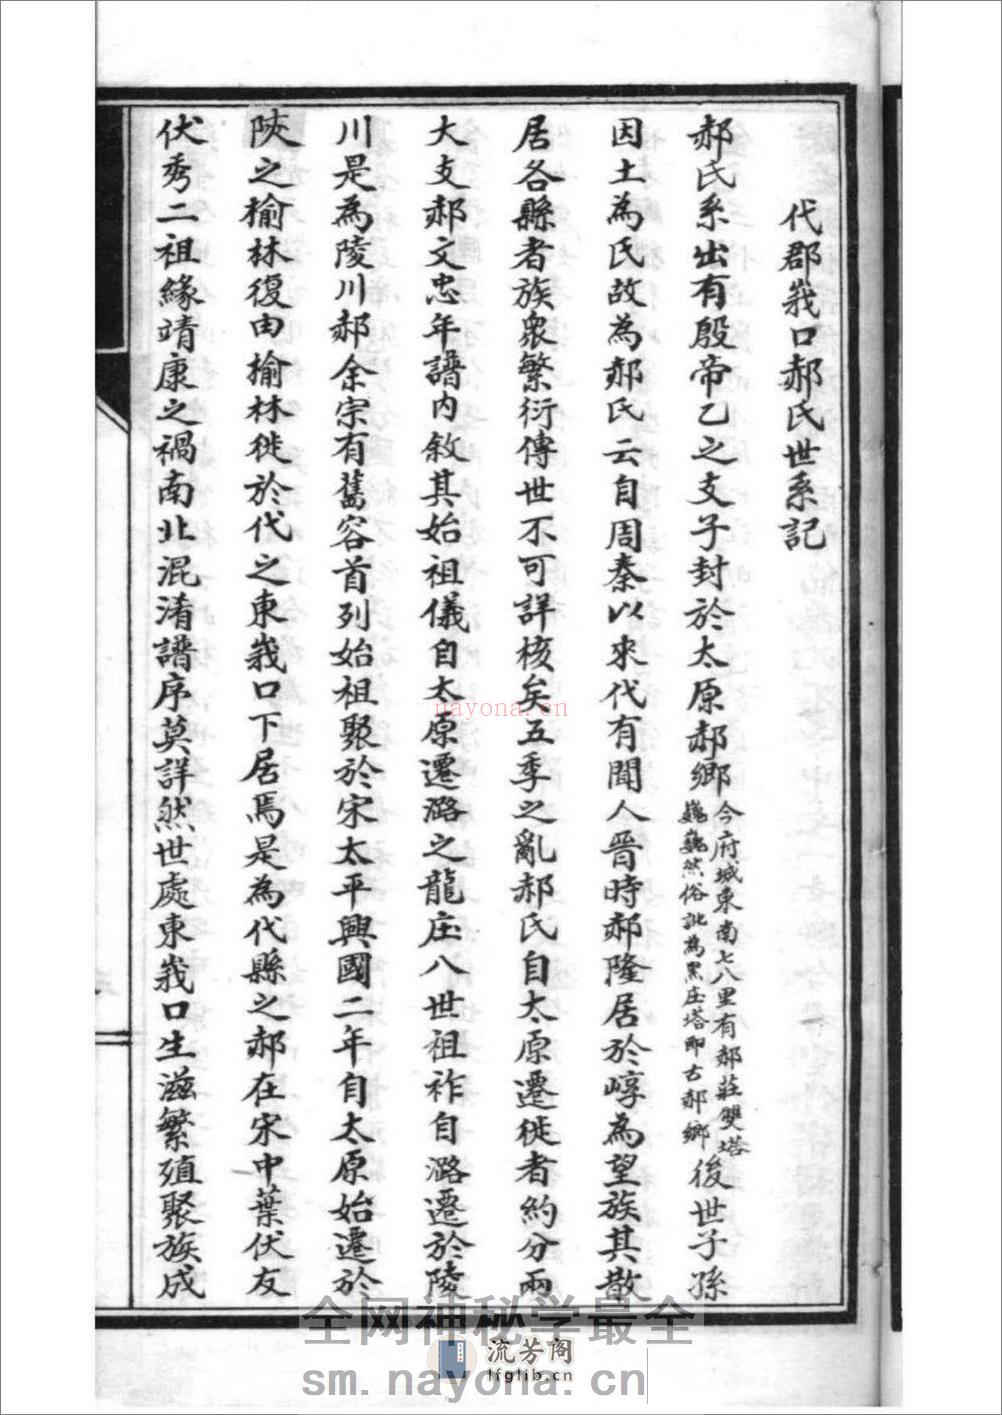 代郡峩口郝氏世系記
郝氏系出有殷帝乙之支子封於太原郝鄉今府城東南七八里有郝莊雙塔巍巍然俗訛為黑庄塔即古郝鄉後世子孫
因土為氏故為郝氏云自周秦以來代有聞人晉時郝隆居於崞為望族其散
居各縣者族衆繁衍傳世不可詳核矣五季之亂郝氏自太原遷徙者約分兩
大支郝文忠年譜內敘其始祖儀自太原遷潞之龍庄八世祖祚自潞遷於陵
川是為陵川郝余宗有舊容首列始祖聚於宋太平興國二年自太原始遷於
陝之榆林復由榆林徙於代之東峩口下居焉是為代縣之郝在宋中葉伏友
伏秀二祖緣靖康之禍南北混淆譜序莫詳然世處東峩口生滋繁殖聚族成
nayona.cn
全网神秘学最全
流芳阁
lfglib.cn
sm.nayona.cn